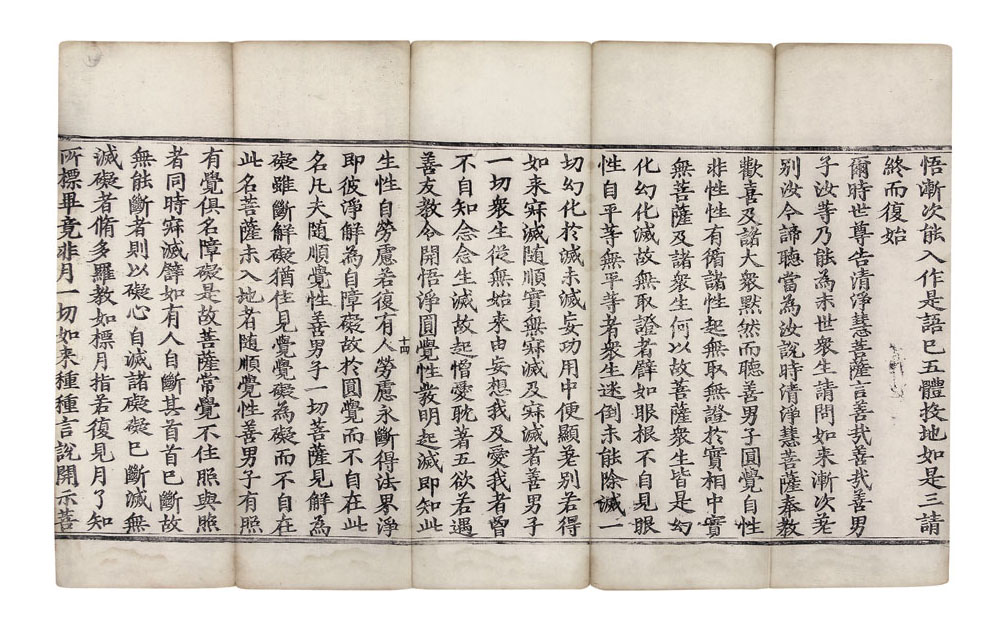 悟漸次能入作是語已五體投地如是三請
終而復始
爾時世尊告清淨慧菩薩言善哉善哉善男
子汝等乃能為末世衆生請問如来漸次差
别汝今諦聽當為汝說時清淨慧菩薩奉教
歡喜及諸大衆黙然而聽善男子圓覺自性
非性性有循諸性起無取無證於實相中實
無菩薩及諸衆生何以故菩薩衆生皆是幻
化幻化滅故無取證者譬如眼根不自見眼
性自平等無平等者衆生迷倒未能除滅一
切幻化於滅未滅妄功用中便顯差别若得
如来寂滅随順實無寂滅及寂滅者善男子
一切衆生從無始来由妄想我及愛我者曾
不自知念念生滅故起憎愛耽著五欲若遇
善友教令開悟淨圓覺性發明起滅即知此
十四
生性自勞慮若復有人勞慮永斷得法界淨
即彼淨解為自障礙故於圓覺而不自在此
名凡夫随順覺性善男子一切菩薩見解為
礙雖斷解礙猶住見覺覺礙為礙而不自在
此名菩薩未入地者随順覺性善男子有照
有覺俱名障礙是故菩薩常覺不住照與照
者同時寂滅譬如有人自斷其首首已斷故
無能斷者則以礙心自滅諸礙礙已斷滅無
滅礙者脩多羅教如標月指若復見月了知
所標畢竟非月一切如来種種言說開示菩